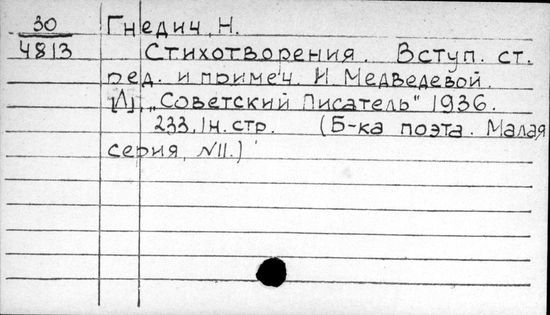 30
4813
Гнедич, Н.
Стихотворения. Вступ. ст.
ред. и примеч. И. Медведевой.
[Л], „Советский Писатель" 1936.
233, 1н. стр. (Б-ка поэта. Малая
серия, №11.)